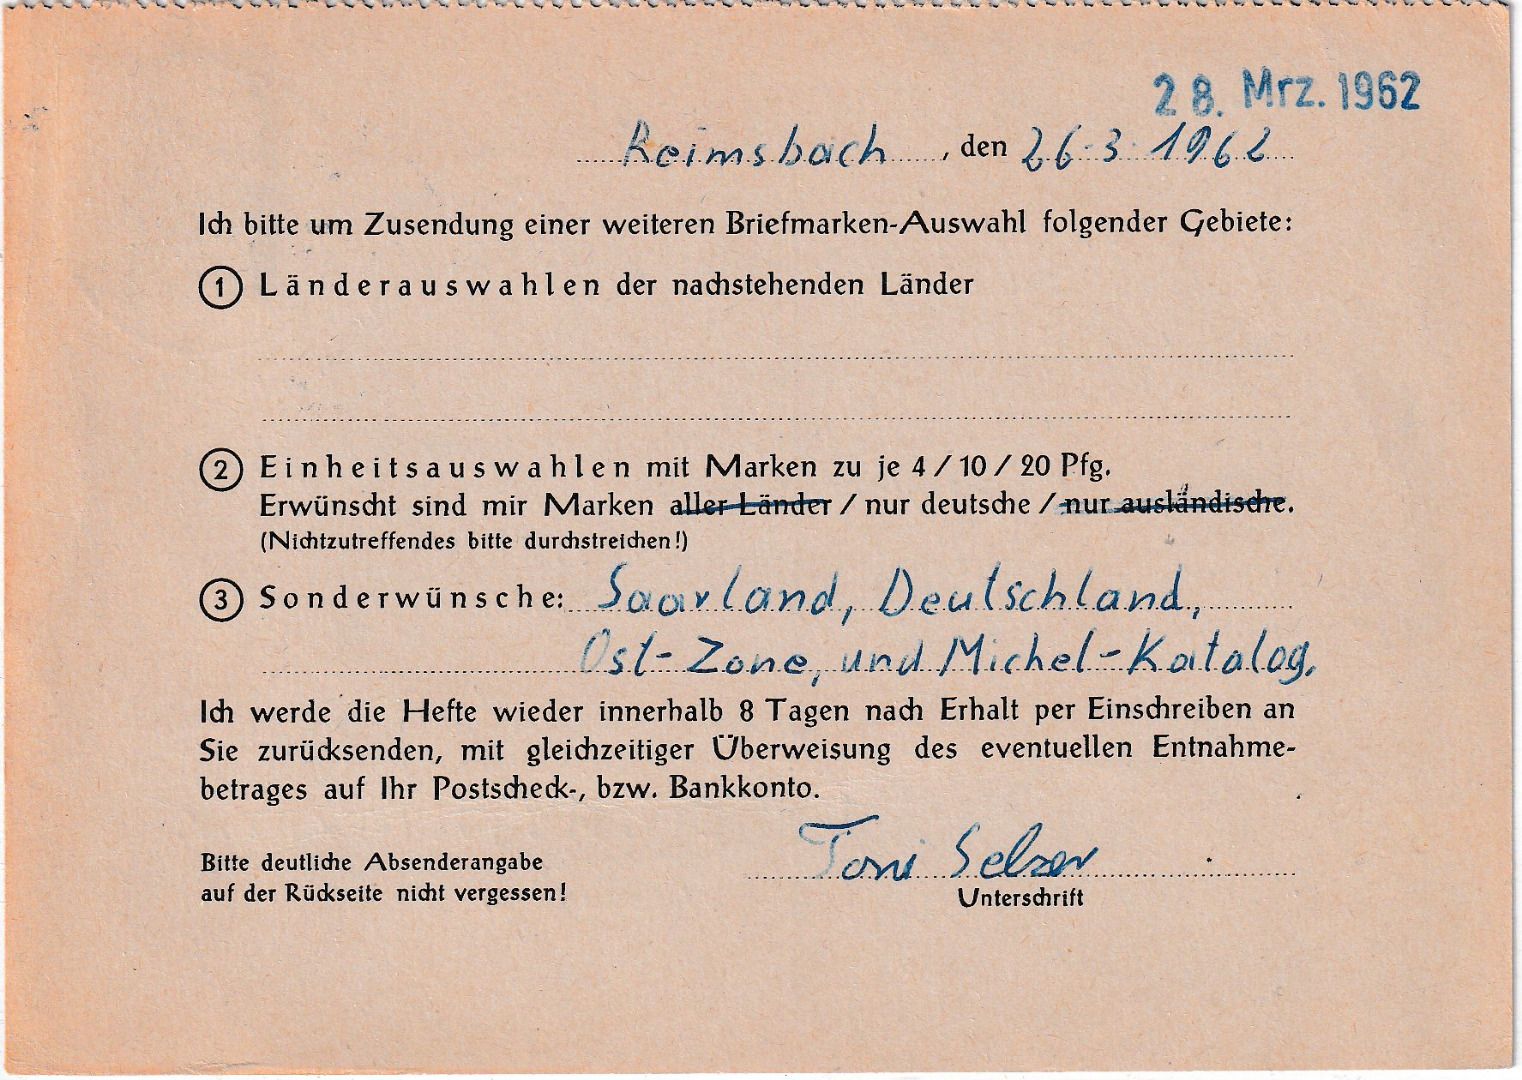 28. Mrz. 1962
Reimsbach, den 26.3.1962
Ich bitte um Zusendung einer weiteren Briefmarken-Auswahl folgender Gebiete:
1 Länderauswahlen der nachstehenden Länder
2 Einheitsauswahlen mit Marken zu je 4 / 10 / 20 Pfg.
Erwünscht sind mir Marken aller Länder / nur deutsche / nur ausländische.
(Nichtzutreffendes bitte durchstreichen!)
3 Sonderwünsche: Saarland, Deutschland,
Ost-Zone, und Michel-Katalog.
Ich werde die Hefte wieder innerhalb 8 Tagen nach Erhalt per Einschreiben an
Sie zurücksenden, mit gleichzeitiger Überweisung des eventuellen Entnahme-
betrages auf Ihr Postscheck-, bzw. Bankkonto.
Bitte deutliche Absenderangabe
auf der Rückseite nicht vergessen!
Toni Selzer
Unterschrift